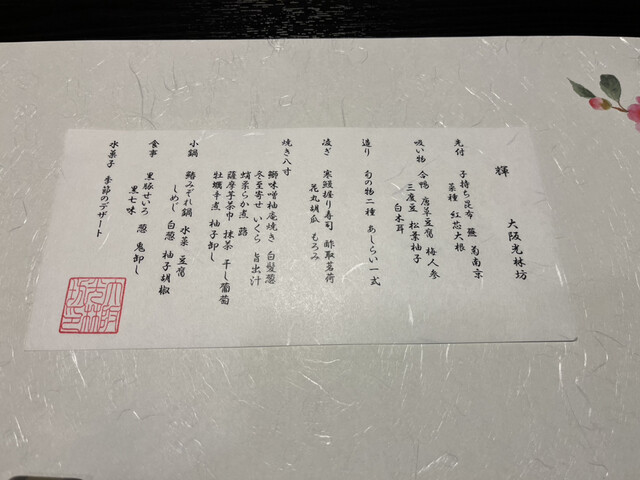 大阪光林坊
輝
先付 子持ち昆布 蕪 菊南京
菜種 紅芯大根
吸い物 合鴨 唐草豆腐 梅人参
三度豆 松葉柚子
白木耳
造り 旬の物二種 あしらい一式
凌ぎ 寒鰻握り寿司 酢取茗荷
花丸胡瓜 もろみ
焼き八寸
鰤味噌柚庵焼き 白髪葱
冬至寄せ いくら 旨出汁
蛸柔らか煮 蕗
薩摩芋茶巾 抹茶 干し葡萄
牡蠣辛煮 柚子卸し
小鍋 鱈みぞれ鍋 水菜 豆腐
しめじ 白葱 柚子胡椒
食事 黒豚せいろ 葱 鬼卸し
黒七味
水菓子 季節のデザート